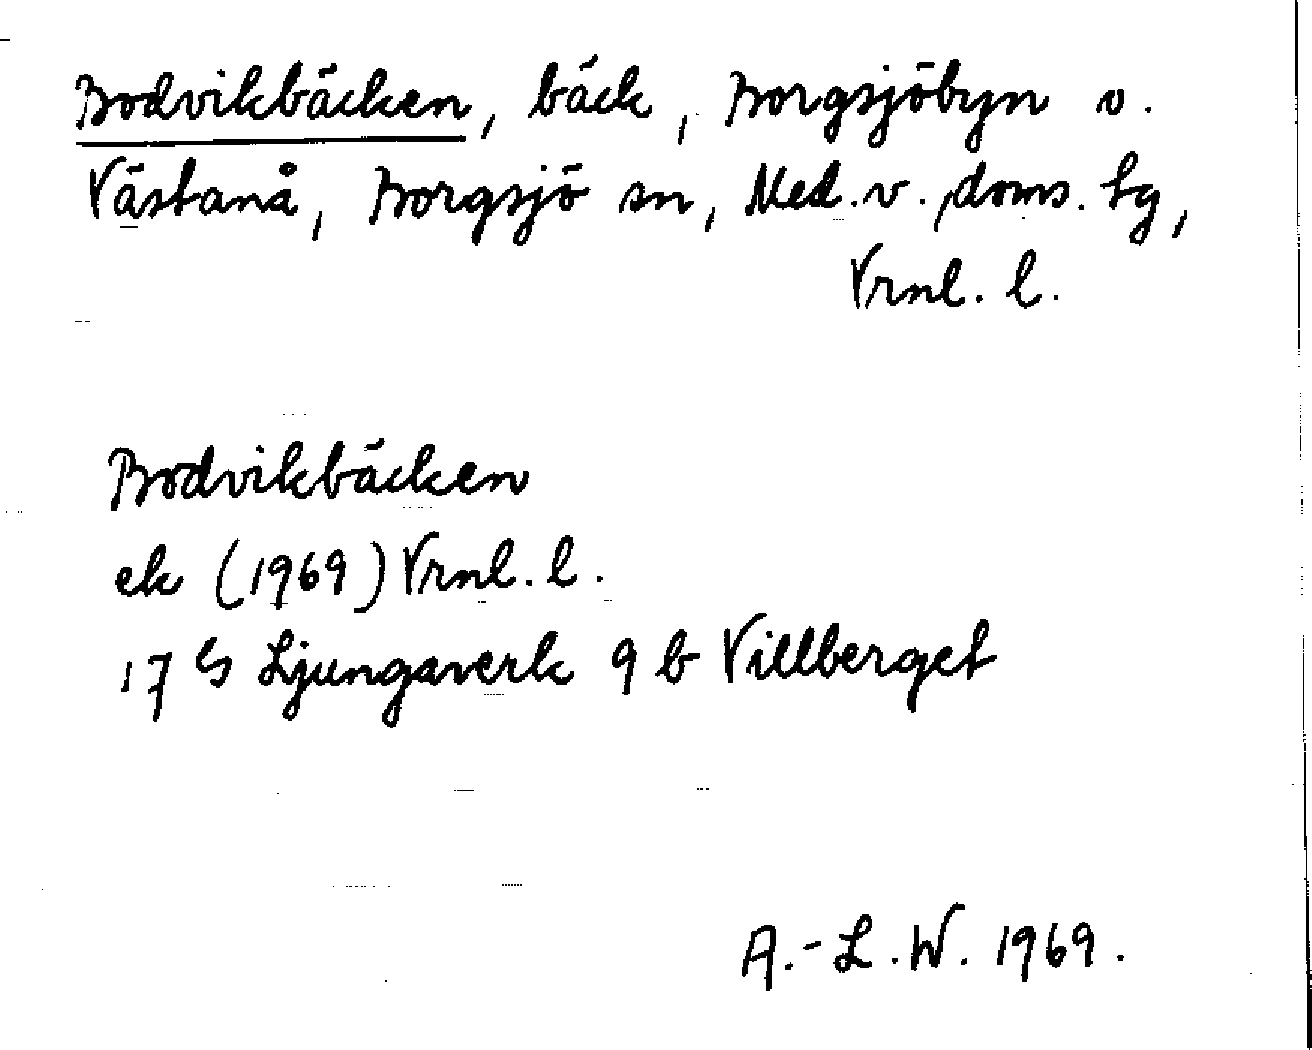 Bodvikbäcken, bäck, Borgsjöbyn o.
Västanå, Borgsjö sn, Med. v. doms. tg,
Vrnl. l.
Bodvikbäcken
ek (1969) Vrnl. l.
17 G Ljungaverk 9 b Villberget
A.-L.W. 1969.